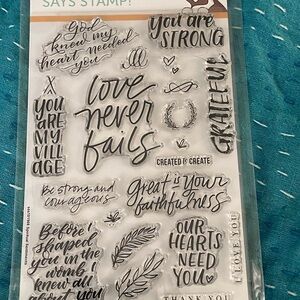 SAYS STAMP!
God
knew my
heart needed
you
you are
STRONG
GRATEFUL
YOU
ARE
MY
VILL
AGE
love
never
fails
CREATED to CREATE
Be strong and
courageous
great is your
faithfulness
Before I
shaped
you in
the womb
I knew
all about
you
OUR
HEARTS
NEED
YOU
I LOVE YOU
THANK YOU